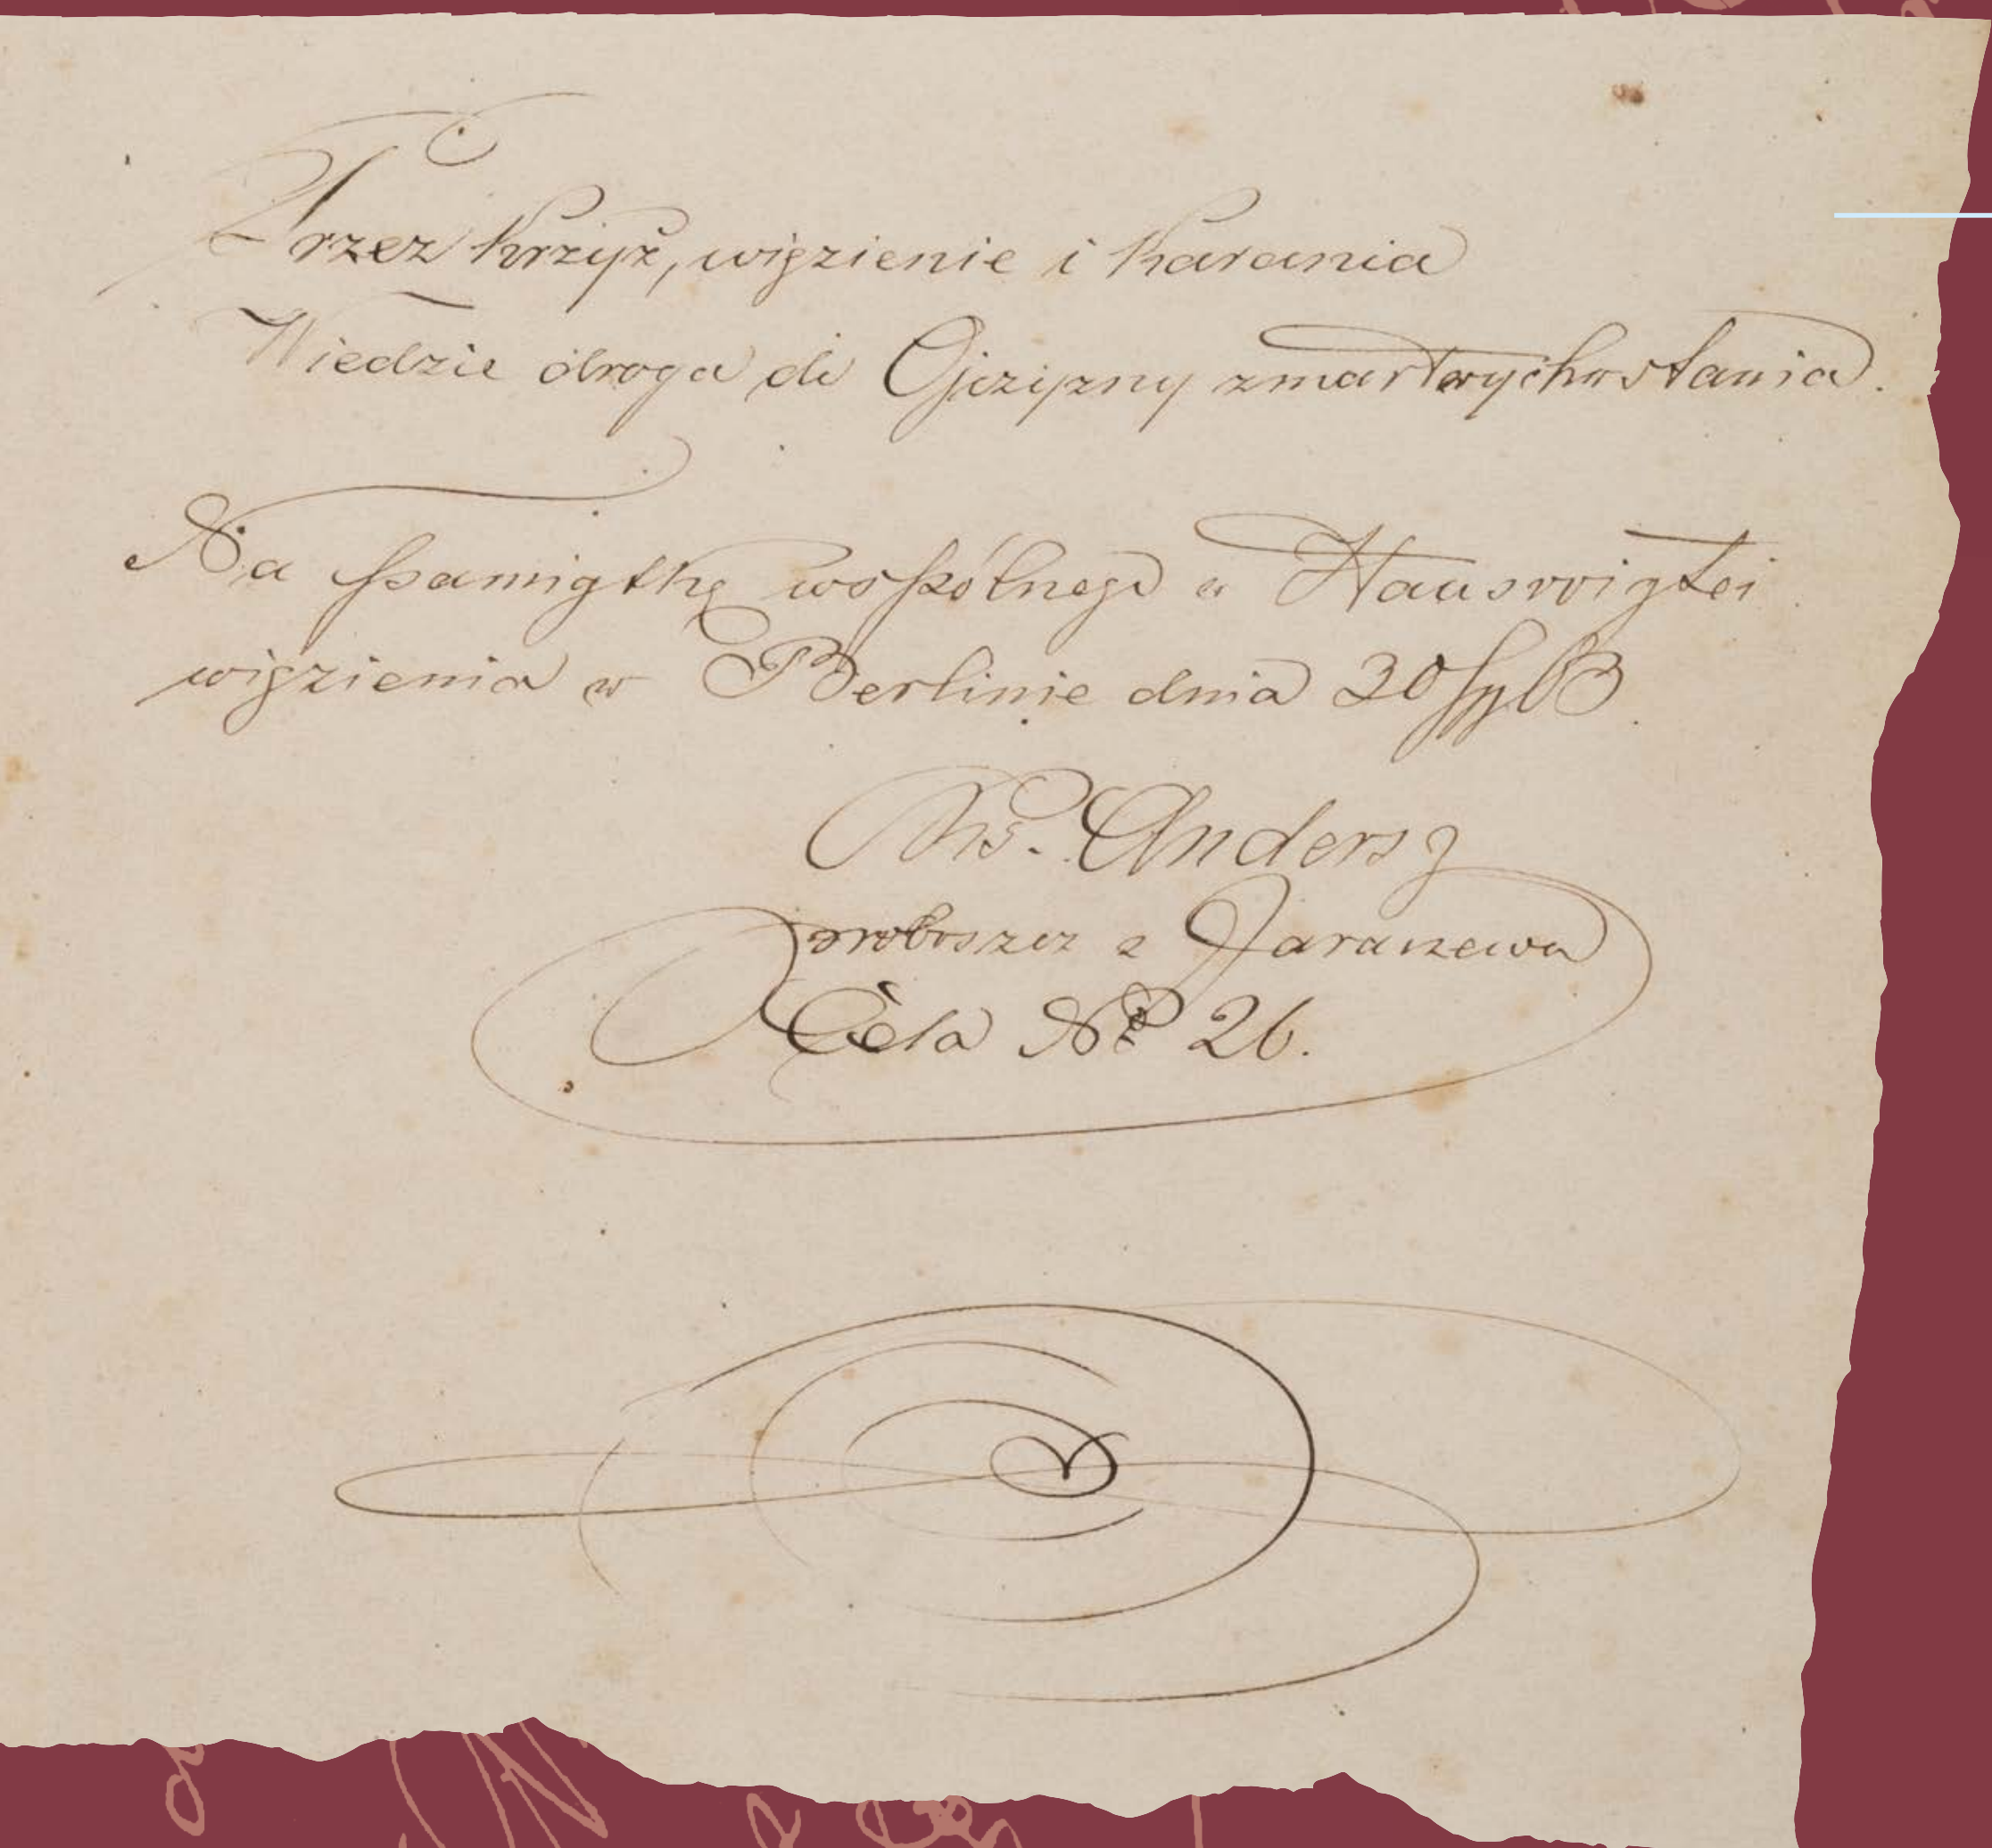 Przez krzyż, więzienie i karania
Wiedzie droga do Ojczyzny zmartwychwstania.
Na pamiątkę wspólnego w Hausvoigtei
więzienia w Berlinie dnia
Ks. Andersz
proboszcz z Jaraczewa
Cela No 26.